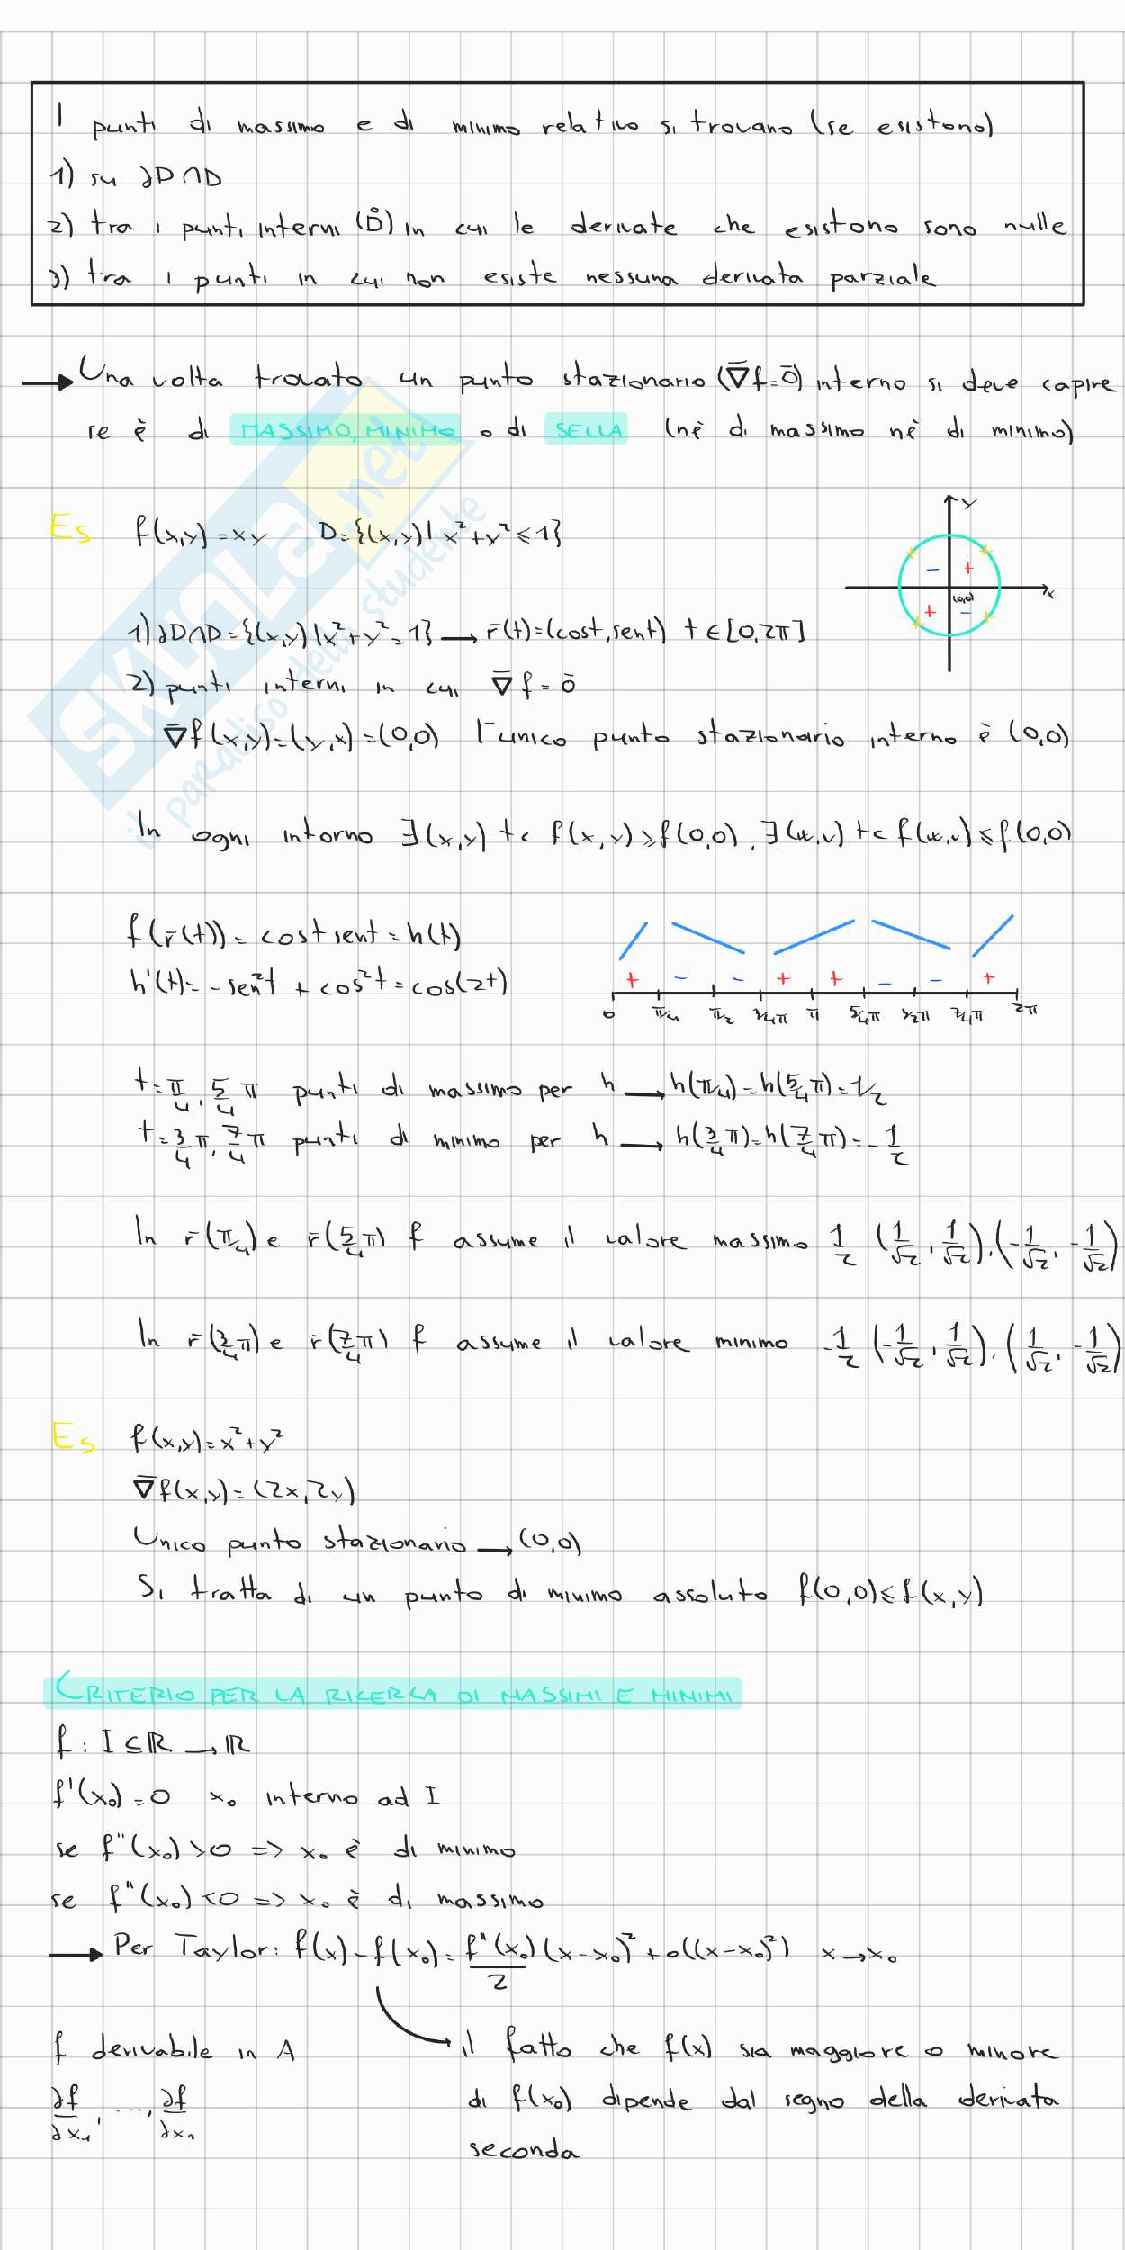 I punti di massimo e di minimo relativo si trovano (se esistono)
1) su ∂D∩D
2) tra i punti interni (D̊) in cui le derivate che esistono sono nulle
3) tra i punti in cui non esiste nessuna derivata parziale
→ Una volta trovato un punto stazionario (∇̄f=0̄) interno si deve capire
se è di MASSIMO, MINIMO o di SELLA (nè di massimo nè di minimo)
Es f(x,y)=xy D={(x,y)| x²+y²≤1}
y
- +
+ (0,0) -
x
1) ∂D∩D={(x,y)|x²+y²=1} → r̄(t)=(cost,sent) t∈[0,2π]
2) punti interni in cui ∇̄f=0̄
∇̄f(x,y)=(y,x)=(0,0) l'unico punto stazionario interno è (0,0)
In ogni intorno ∃(x,y) tc f(x,y)≥f(0,0), ∃(u,v) tc f(u,v)≤f(0,0)
f(r̄(t))=cost sent=h(t)
h'(t)=-sen²t+cos²t=cos(2t)
+ - - + + - - +
0 π/4 π/2 3/4π π 5/4π 3/2π 7/4π 2π
t=π/4, 5/4 π punti di massimo per h → h(π/4)=h(5/4π)=1/2
t=3/4π, 7/4π punti di minimo per h → h(3/4π)=h(7/4π)=-1/2
In r̄(π/4) e r̄(5/4π) f assume il valore massimo 1/2 (1/√2, 1/√2), (-1/√2, -1/√2)
In r̄(3/4π) e r̄(7/4π) f assume il valore minimo -1/2 (-1/√2, 1/√2), (1/√2, -1/√2)
Es f(x,y)=x²+y²
∇̄f(x,y)=(2x,2y)
Unico punto stazionario → (0,0)
Si tratta di un punto di minimo assoluto f(0,0)≤f(x,y)
CRITERIO PER LA RICERCA DI MASSIMI E MINIMI
f: I⊆ℝ → ℝ
f'(x₀)=0 x₀ interno ad I
se f"(x₀)>0 => x₀ è di minimo
se f"(x₀)<0 => x₀ è di massimo
→ Per Taylor: f(x)-f(x₀)=f"(x₀)/2 (x-x₀)²+o((x-x₀)²) x→x₀
f derivabile in A
∂f/∂x₁, ..., ∂f/∂xₙ
il fatto che f(x) sia maggiore o minore
di f(x₀) dipende dal segno della derivata
seconda
SKUOLA.net
il paradiso dello studente